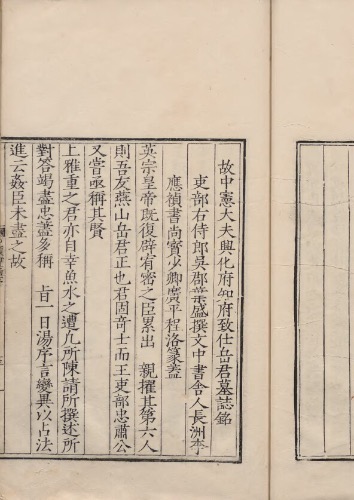 故中憲大夫興化府知府致仕岳君墓誌銘
吏部右侍郎吳郡葉盛撰文中書舍人長洲李
應禎書尚寶少卿廣平程洛篆蓋
英宗皇帝既復辟宥密之臣累出　親擢其第六人
則吾友燕山岳君正也君固奇士而王吏部忠肅公
又嘗亟稱其賢
上雅重之君亦自幸魚水之遭凡所陳請所撰述所
對答竭盡忠藎多稱　旨一日湯序言變異以占法
進云姦臣未盡之故